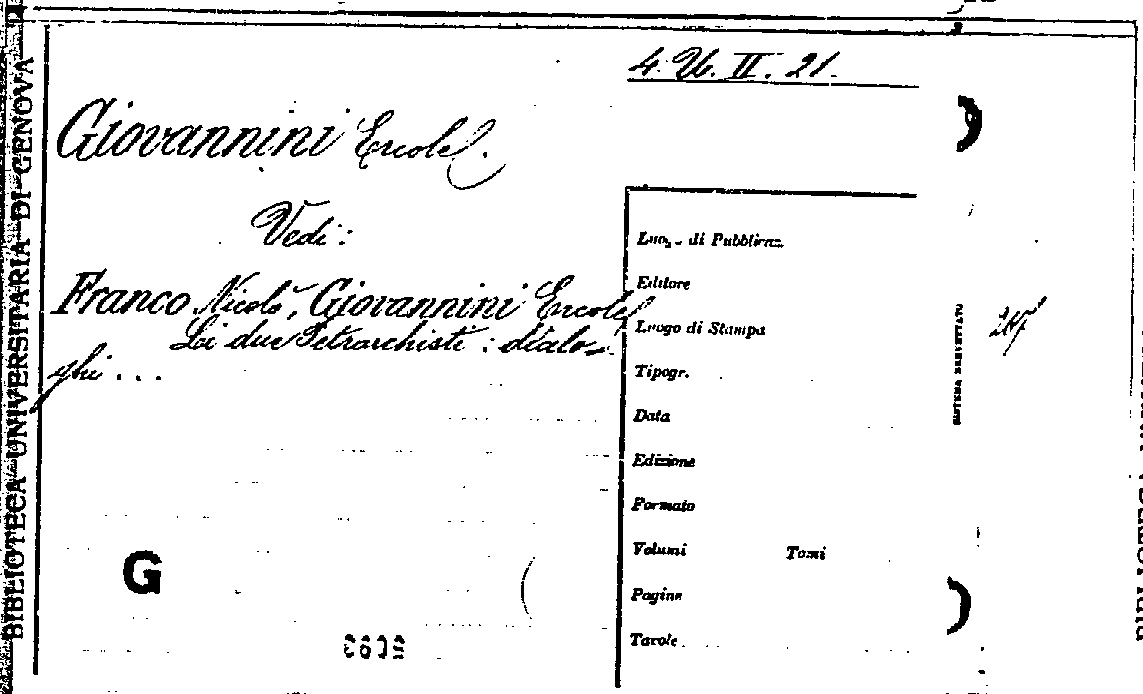 4. U. II. 21.
Giovannini Ercole.
Vedi:
Franco Nicolò, Giovannini Ercole
Li due Petrarchisti: dialo-
ghi...
di Pubblicaz.
Editore
Luogo di Stampa
Tipogr.
Data
Edizione
Formato
Volumi Tomi
Pagine
Tavole
G
BIBLIOTECA UNIVERSITARIA DI GENOVA